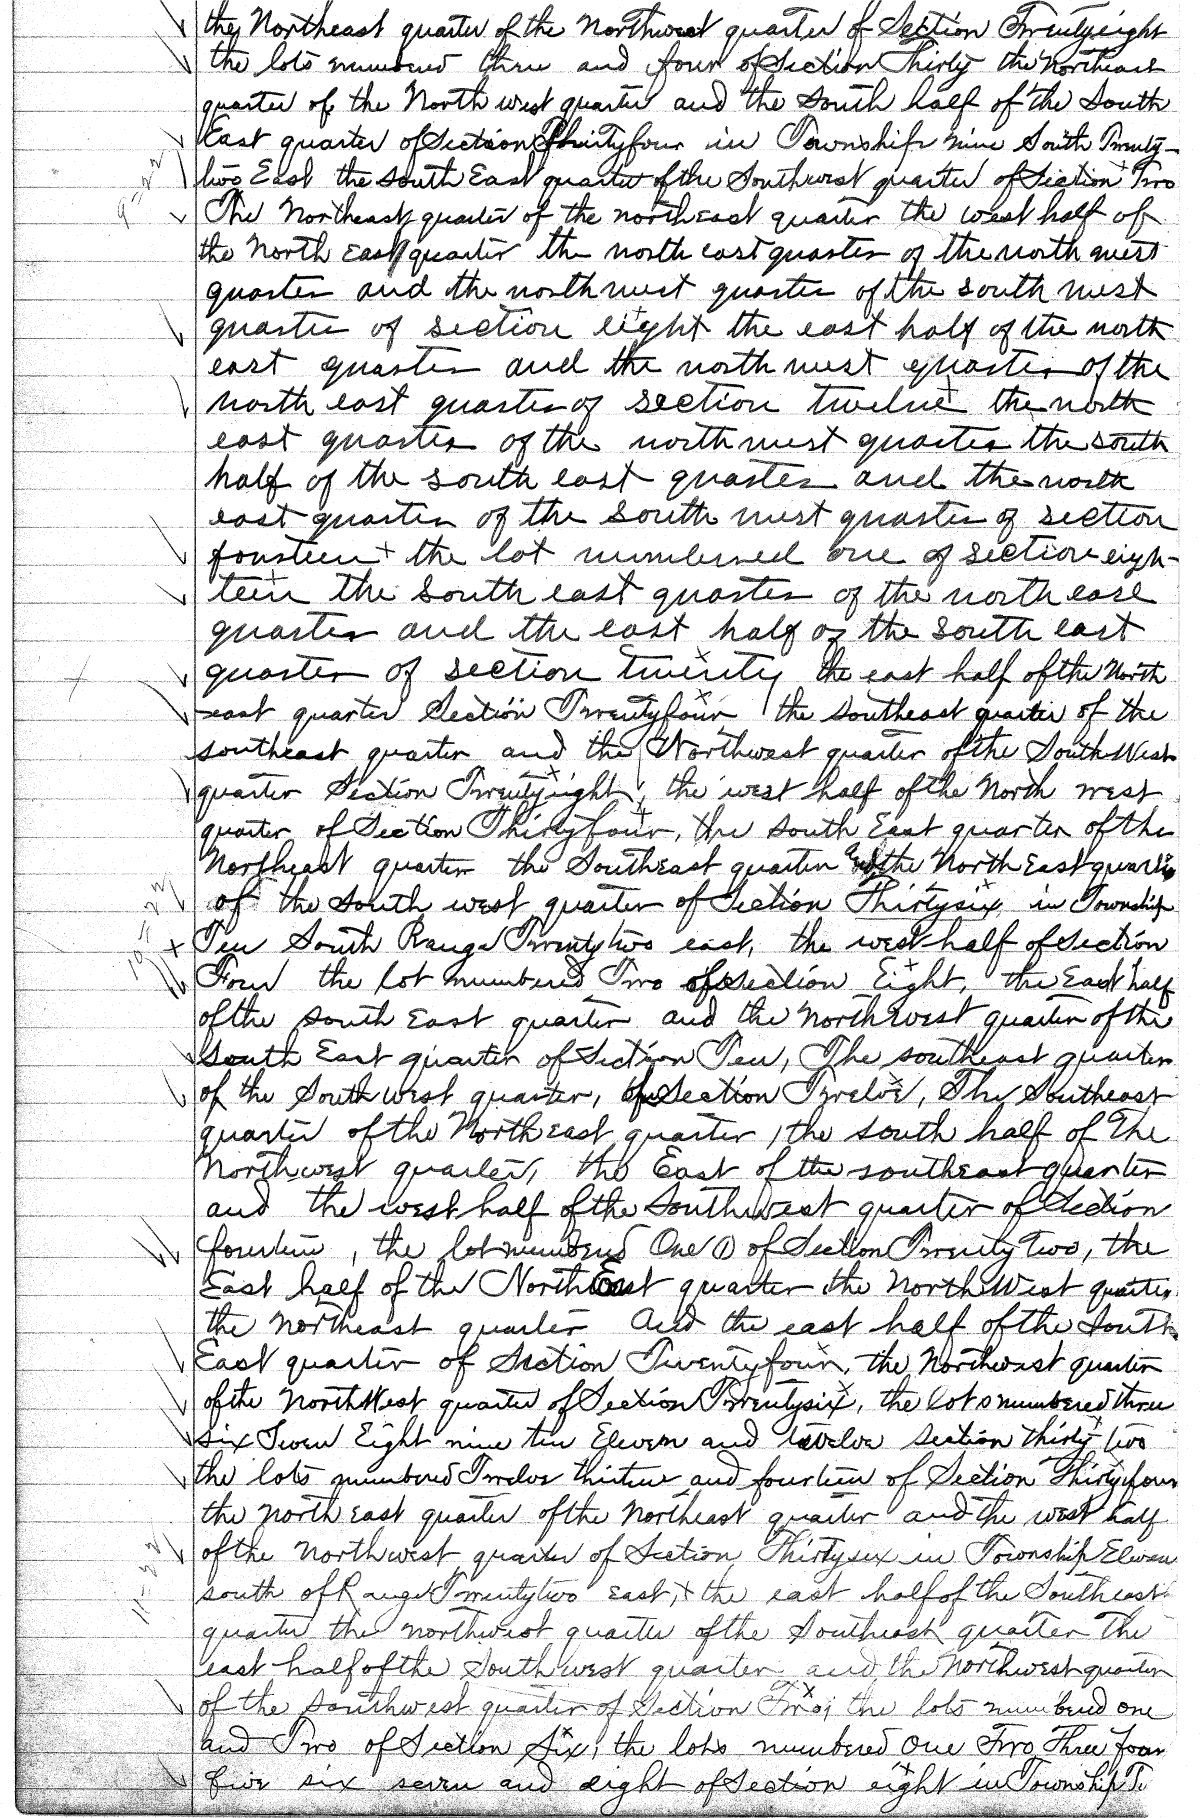 the Northeast quarter of the Northwest quarter of Section Twentyeight
the lots numbered three and four of Section Thirty the Northeast
quarter of the North west quarter and the South half of the South
East quarter of Section Thirtyfour in Township nine South Twenty-
two East the South East quarter of the Southwest quarter of Section Two
9-22
The Northeast quarter of the northeast quarter the west half of
the North East quarter the north east quarter of the north west
quarter and the north west quarter of the south west
quarter of section eight the east half of the north
east quarter and the north west quarter of the
north east quarter of section twelve the north
east quarter of the north west quarter the south
half of the south east quarter and the north
east quarter of the South west quarter of section
fourteen + the lot numbered one of section eigh-
teen the South east quarter of the north east
quarter and the east half of the South east
quarter of section twenty the east half of the North
east quarter Section Twentyfour the Southeast quarter of the
southeast quarter and the Northwest quarter of the South West
quarter Section Twentyeight, the west half of the North west
quarter of Section Thirtyfour, the South East quarter of the
Northeast quarter the Southeast quarter and the North East quarter
of the South west quarter of Section Thirtysix in Township
10-22
Ten South Range Twenty two east, the west half of Section
Four the lot numbered Two of Section Eight, the East half
of the South East quarter and the Northwest quarter of the
South East quarter of Section Ten, The southeast quarter
of the South west quarter, of Section Twelve, The Southeast
quarter of the North east quarter, the South half of The
Northwest quarter, the East of the southeast quarter
and the west half of the Southwest quarter of Section
fourteen, the lot numbered One (1) of Section Twenty two, the
East half of the North East quarter the North West quarter
the Northeast quarter And the east half of the South
East quarter of Section Twentyfour, the Northwest quarter
of the North West quarter of Section Twentysix, the lots numbered three
six Seven Eight nine ten Eleven and twelve section thirty two
the lots numbered Twelve thirteen and fourteen of Section Thirtyfour
the north east quarter of the Northeast quarter and the west half
of the Northwest quarter of Section Thirtysix in Township Eleven
11-22
south of Range Twentytwo east, + the east half of the Southeast
quarter the northwest quarter of the Southeast quarter The
east half of the Southwest quarter and the Northwest quarter
of the Southwest quarter of Section Two; the lots numbered one
and Two of Section Six; the lots numbered One Two Three four
five six seven and eight of Section eight in Township